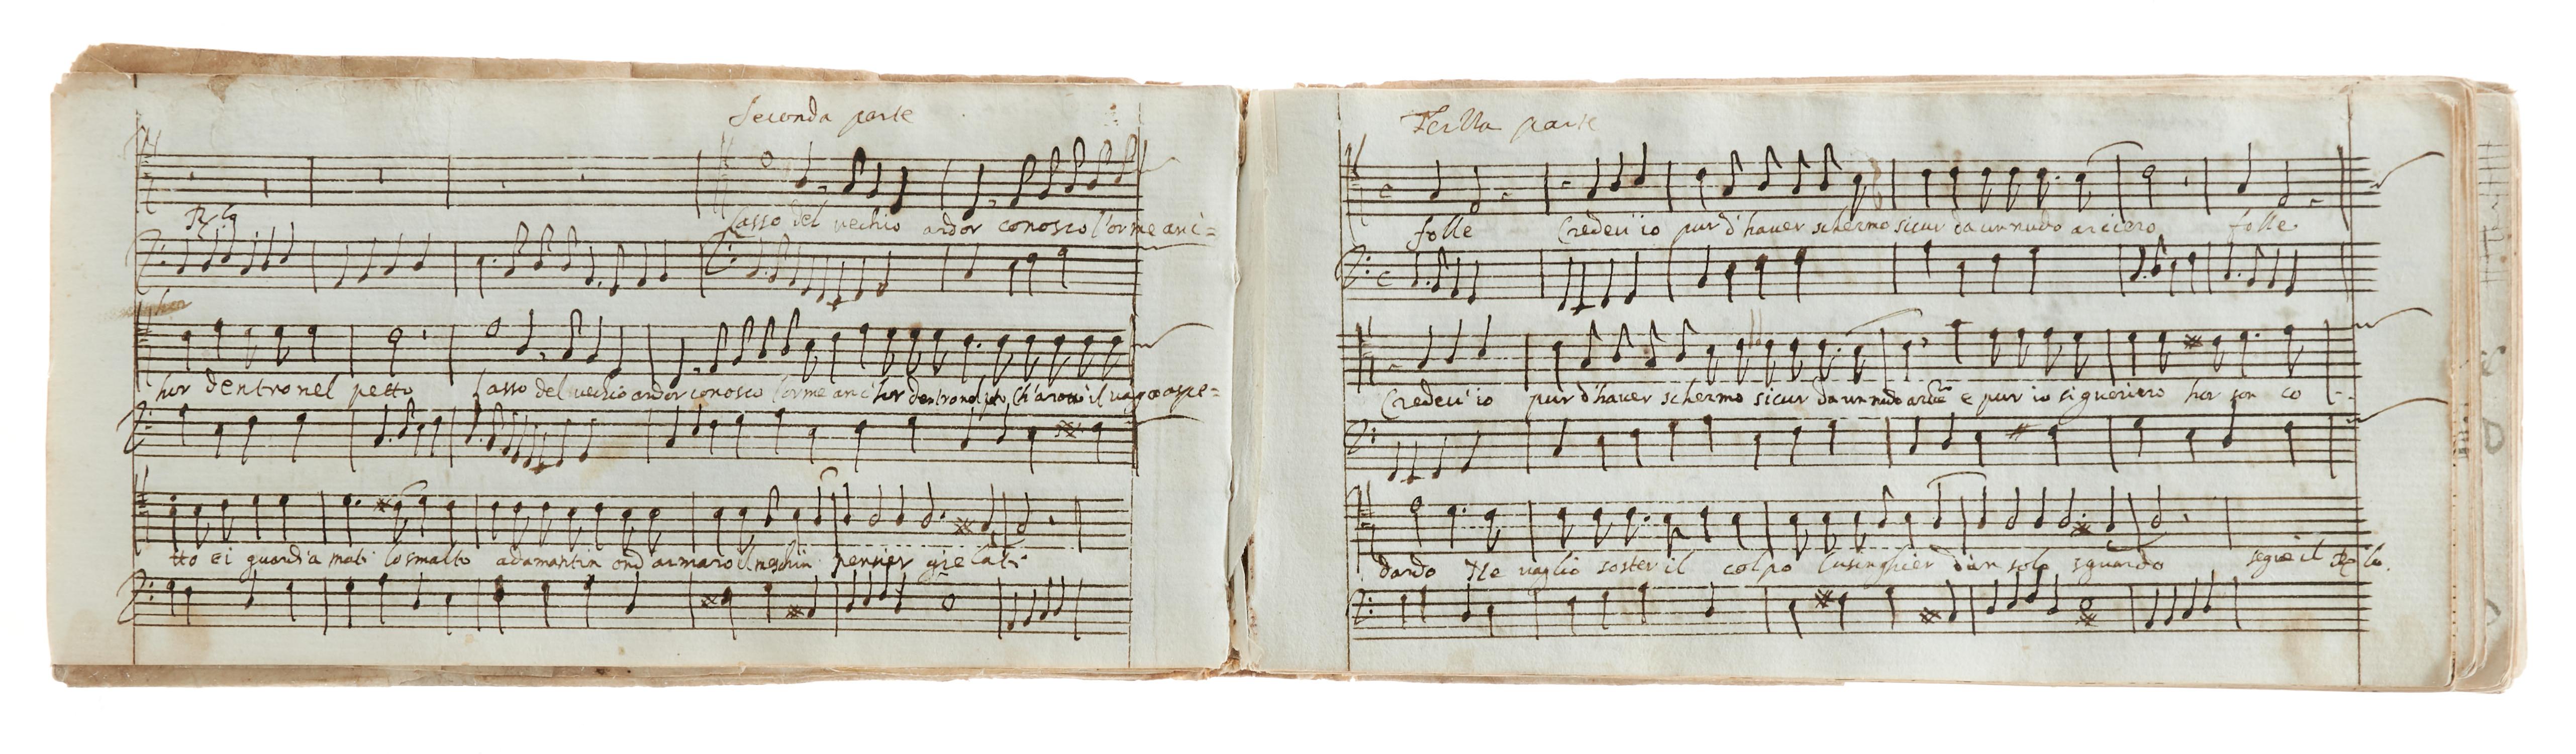 Seconda parte
Lasso del vechio ardor conosco l'orme anc'=
hor dentro nel petto Lasso del vechio ardor conosco l'orme anc'hor dentro nel Ch' il vago aspe=
tto ei guardi amati lo smalto adamantin ond armaro il meschin pensier gielati
Terza parte
folle Credeu'io pur d'hauer schermo sicur da un nudo arciero folle
Credeu'io pur d'hauer schermo sicur da un nudo e pur io si gueriero hor son co
dardo Ne uaglio soster il colpo lusinghier d'un solo sguardo segue il